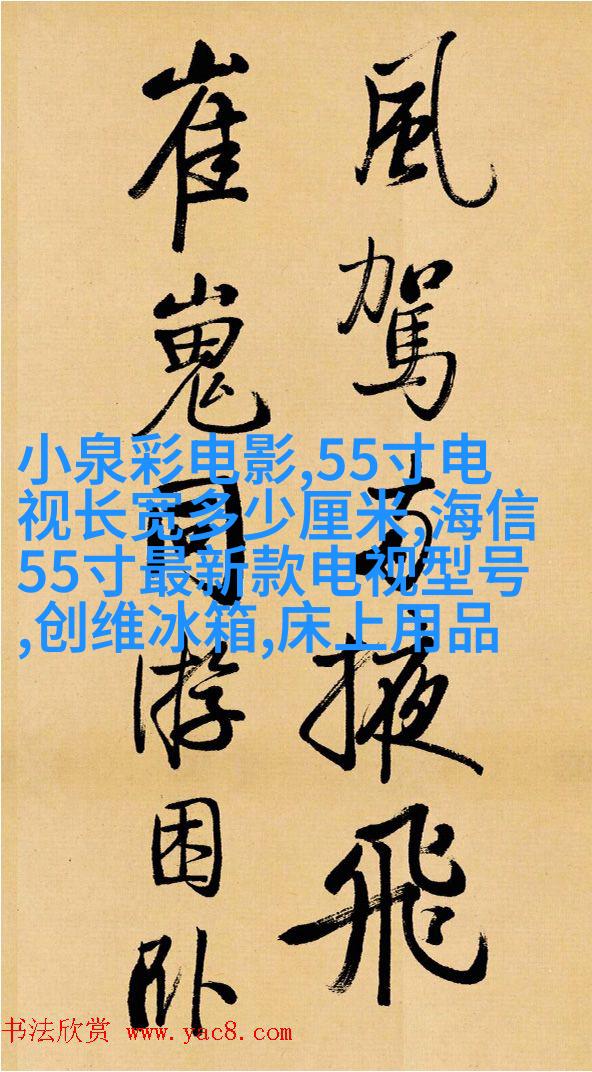 風駕掖飛
崔嵬同游困卧
小泉彩电影,55寸电
视长宽多少厘米,海信
55寸最新款电视型号
,创维冰箱,床上用品
书法欣赏 www.yac8.com